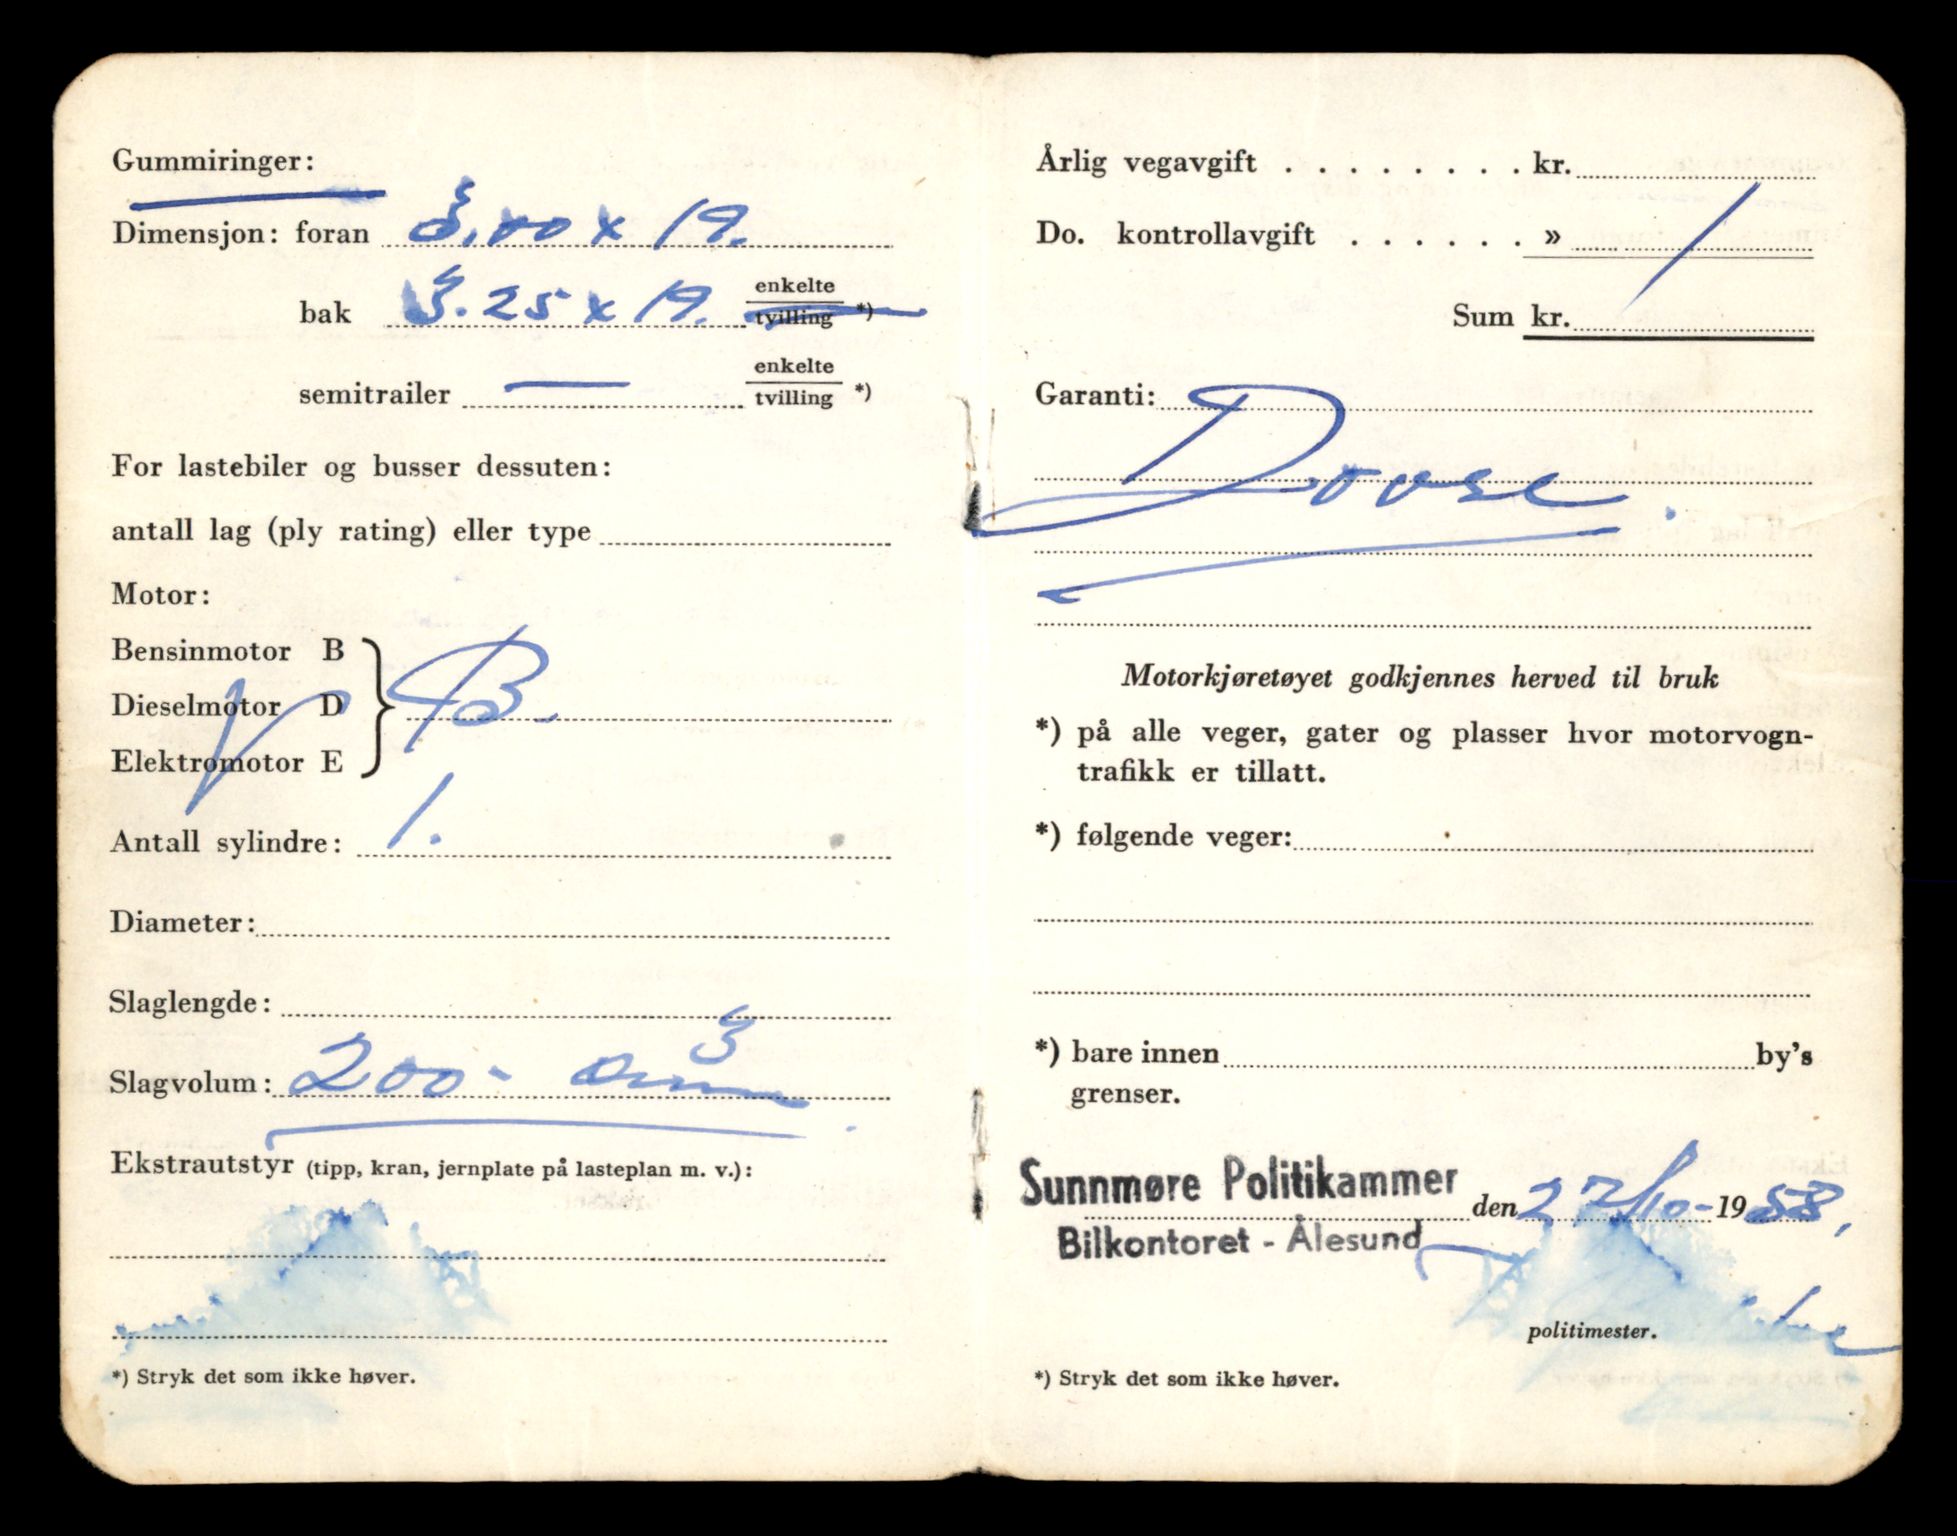 Gummiringer:
Dimensjon: foran 3,00 x 19.
bak 3.25 x 19. enkelte
tvilling *)
semitrailer — enkelte
tvilling *)
For lastebiler og busser dessuten:
antall lag (ply rating) eller type
Motor:
Bensinmotor B
Dieselmotor D
B.
Elektromotor E
Antall sylindre: 1.
Diameter:
Slaglengde:
Slagvolum: 200 - cm3
Ekstrautstyr (tipp, kran, jernplate på lasteplan m. v.):
*) Stryk det som ikke høver.
Årlig vegavgift . . . . . . . . kr.
Do. kontrollavgift . . . . . . »
Sum kr.
Garanti:
Motorkjøretøyet godkjennes herved til bruk
*) på alle veger, gater og plasser hvor motorvogn-
trafikk er tillatt.
*) følgende veger:
*) bare innen by's
grenser.
Sunnmøre Politikammer den 27/10- 1958.
Bilkontoret - Ålesund
politimester.
*) Stryk det som ikke høver.